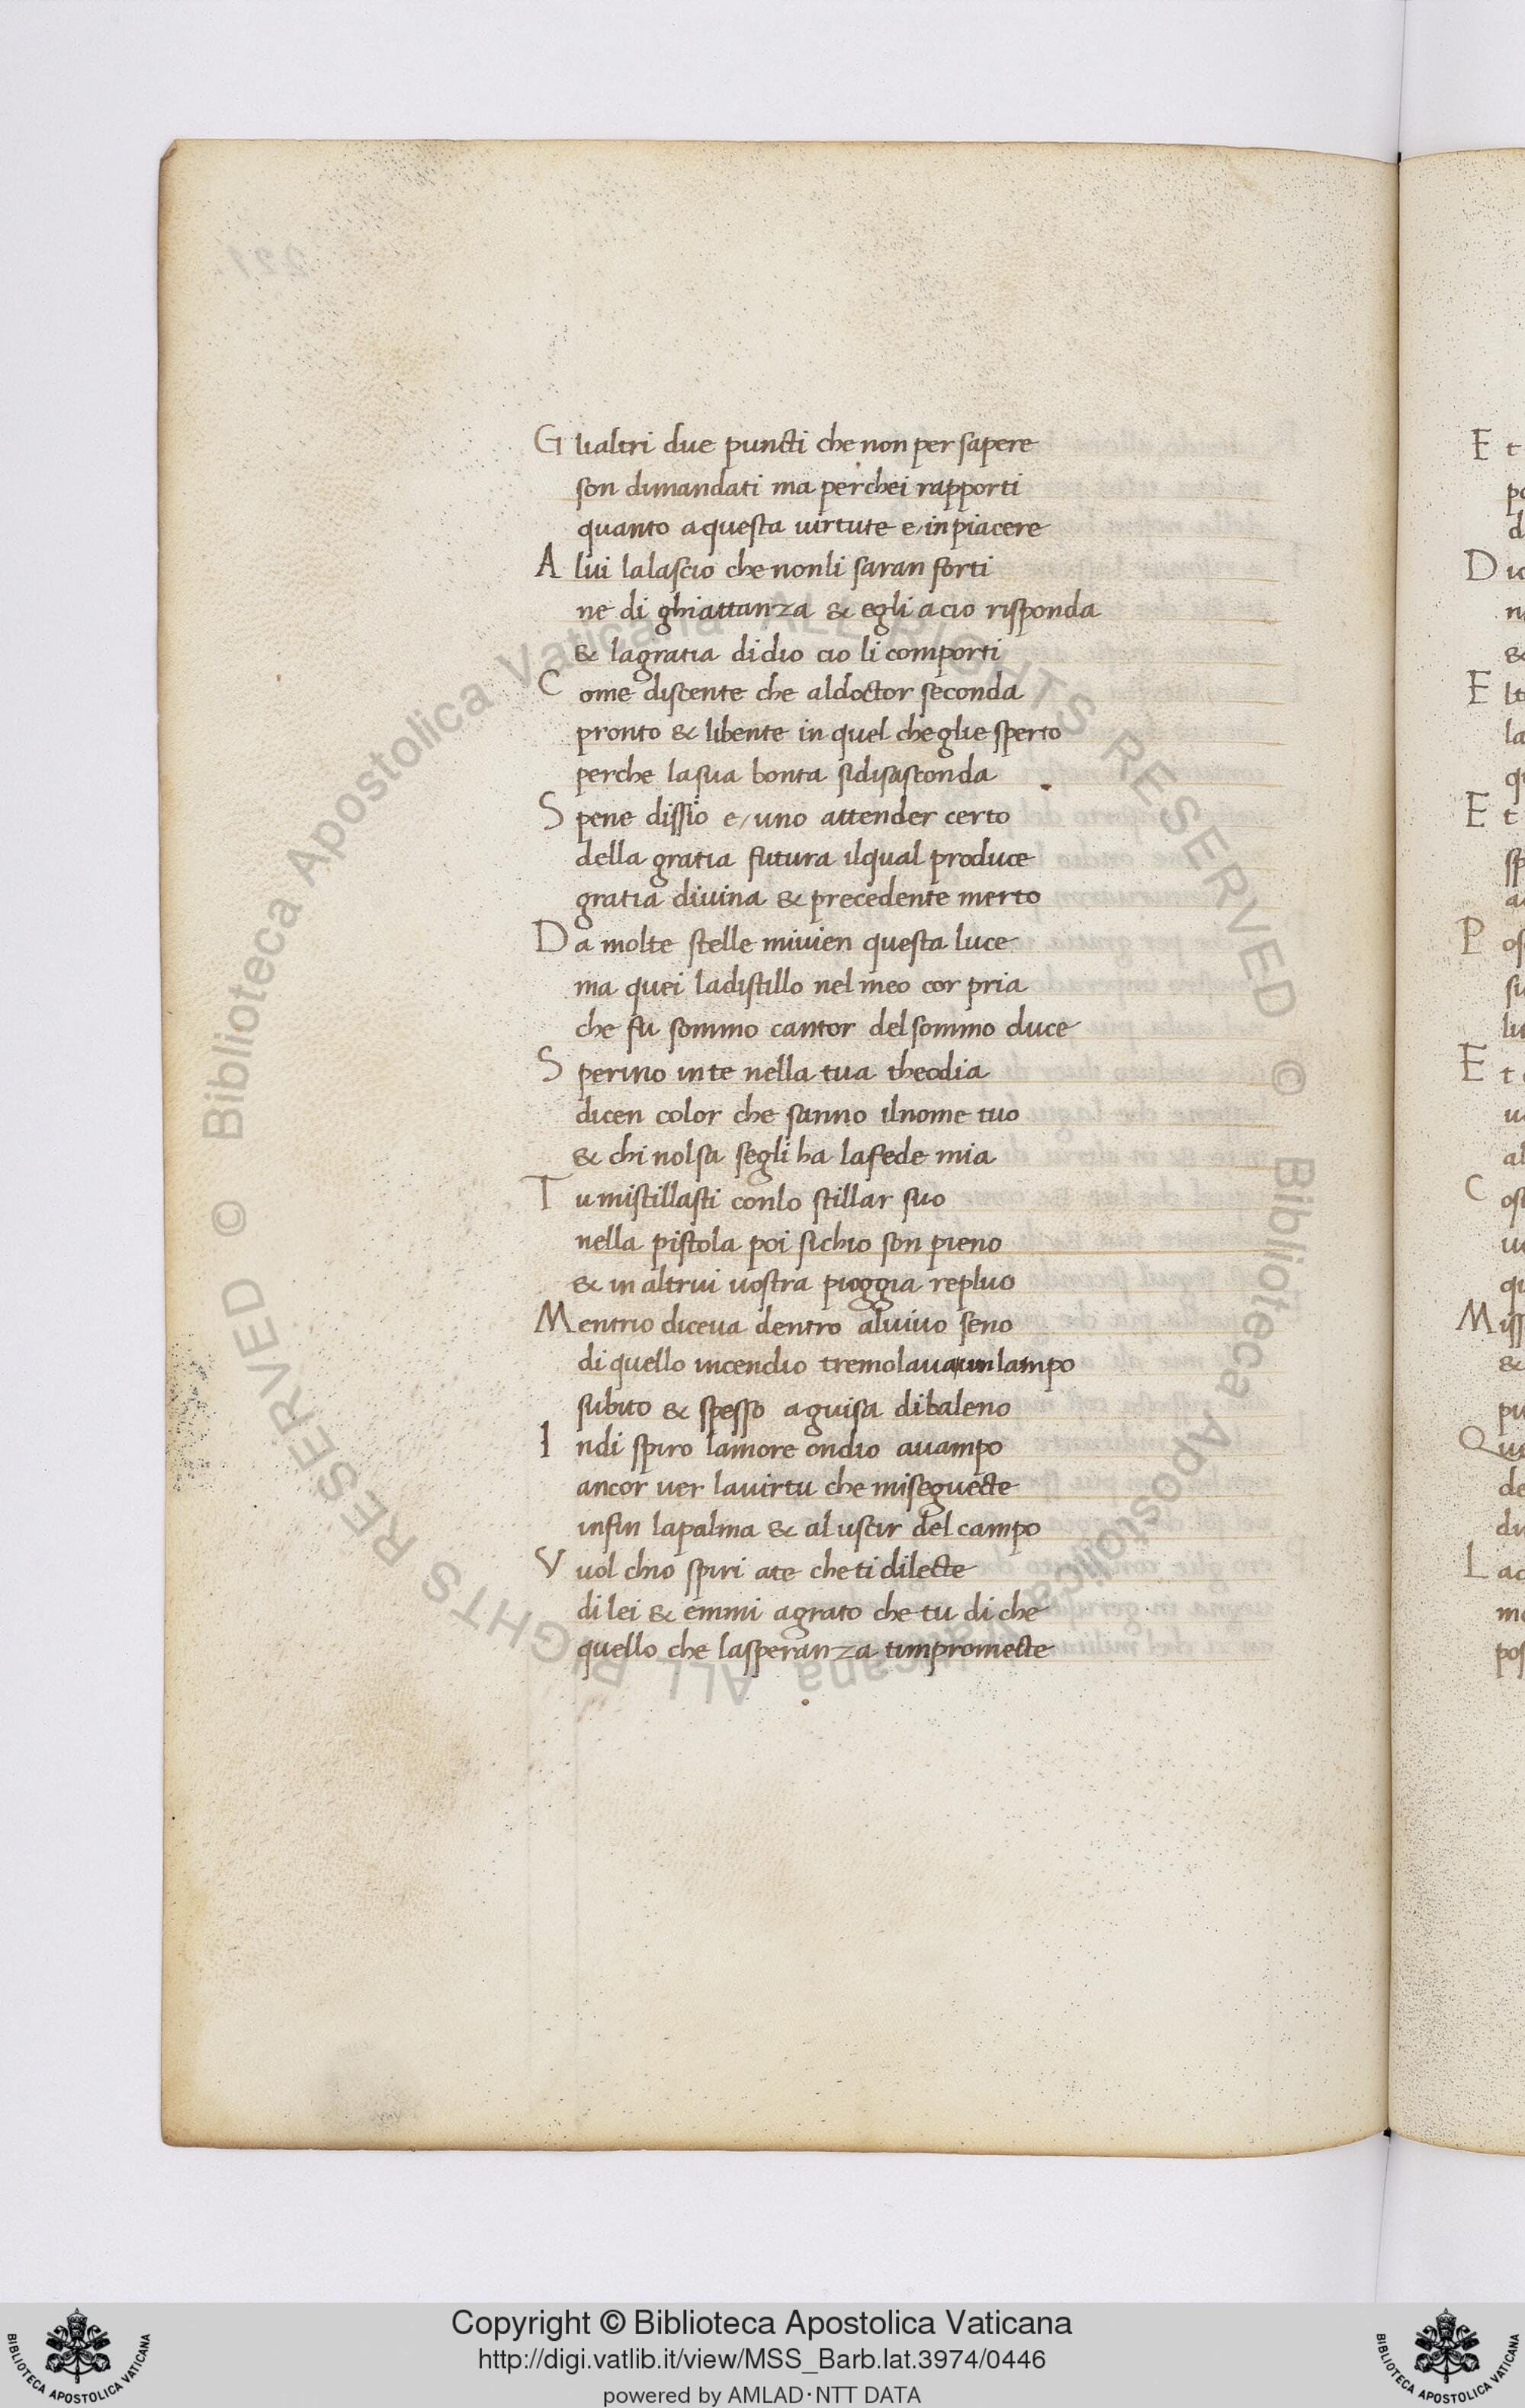 G lialtri due puncti che non per sapere
son dimandati ma perchei rapporti
quanto aquesta uirtute e/inpiacere
A lui lalascio che nonli saran forti
ne di ghiattanza & egli acio risponda
& lagratia didio cio li comporti
C ome discente che aldoctor seconda
pronto & libente in quel cheglie sperto
perche lasua bonta sidisasconda
S pene dissio e/uno attender certo
della gratia futura ilqual produce
gratia diuina & precedente merto
D a molte stelle miuien questa luce
ma quei ladistillo nel meo cor pria
che fu sommo cantor delsommo duce
S perino inte nella tua theodia
dicen color che sanno ilnome tuo
& chi nolsa segli ha lafede mia
T u mistillasti conlo stillar suo
nella pistola poi sichio son pieno
& in altrui uostra pioggia repluo
M entrio diceua dentro aluiuo seno
di quello incendio tremolaua un lampo
subito & spesso aguisa dibaleno
I ndi spiro lamore ondio auampo
ancor uer lauirtu che miseguecte
infin lapalma & al uscir del campo
V uol chio spiri ate che ti dilecte
di lei & emmi agrato che tu di che
quello che lasperanza timpromecte
221
Copyright © Biblioteca Apostolica Vaticana
http://digi.vatlib.it/view/MSS_Barb.lat.3974/0446
powered by AMLAD·NTT DATA
BIBLIOTECA APOSTOLICA VATICANA
BIBLIOTECA APOSTOLICA VATICANA
© Biblioteca Apostolica Vaticana ALL RIGHTS RESERVED
© Biblioteca Apostolica Vaticana ALL RIGHTS RESERVED